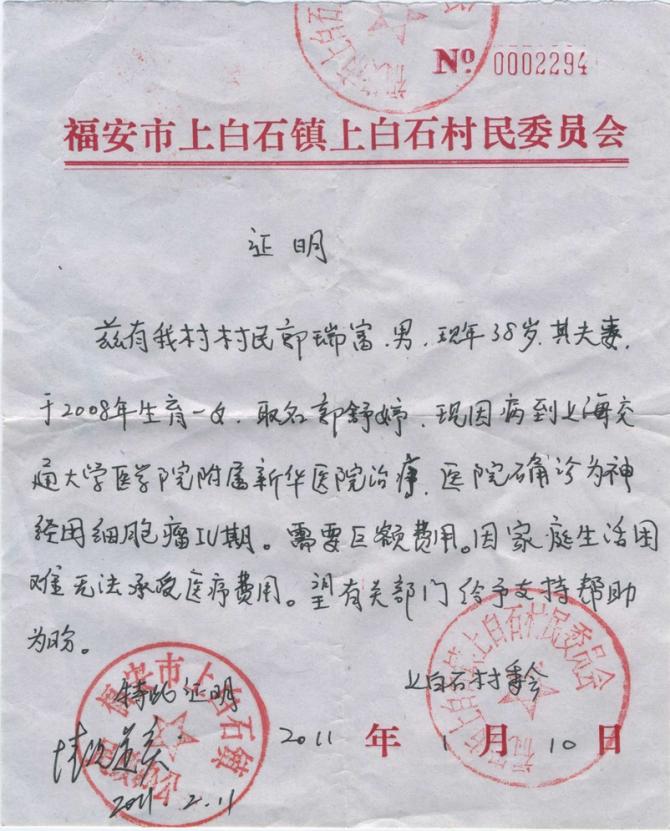 № 0002294
福安市上白石镇上白石村民委员会
证明
兹有我村村民郭瑞富,男,现年38岁,其夫妻,
于2008年生育一女,取名郭舒婷,现因病到上海交
通大学医学院附属新华医院治疗,医院确诊为神
经因细胞瘤IV期。需要巨额费用。因家庭生活困
难无法承受医疗费用。望有关部门给予支持帮助
为盼。
特此证明
上白石村委会
2011年1月10日
2011.2.11
福安市上白石镇
福安市上白石镇上白石村民委员会